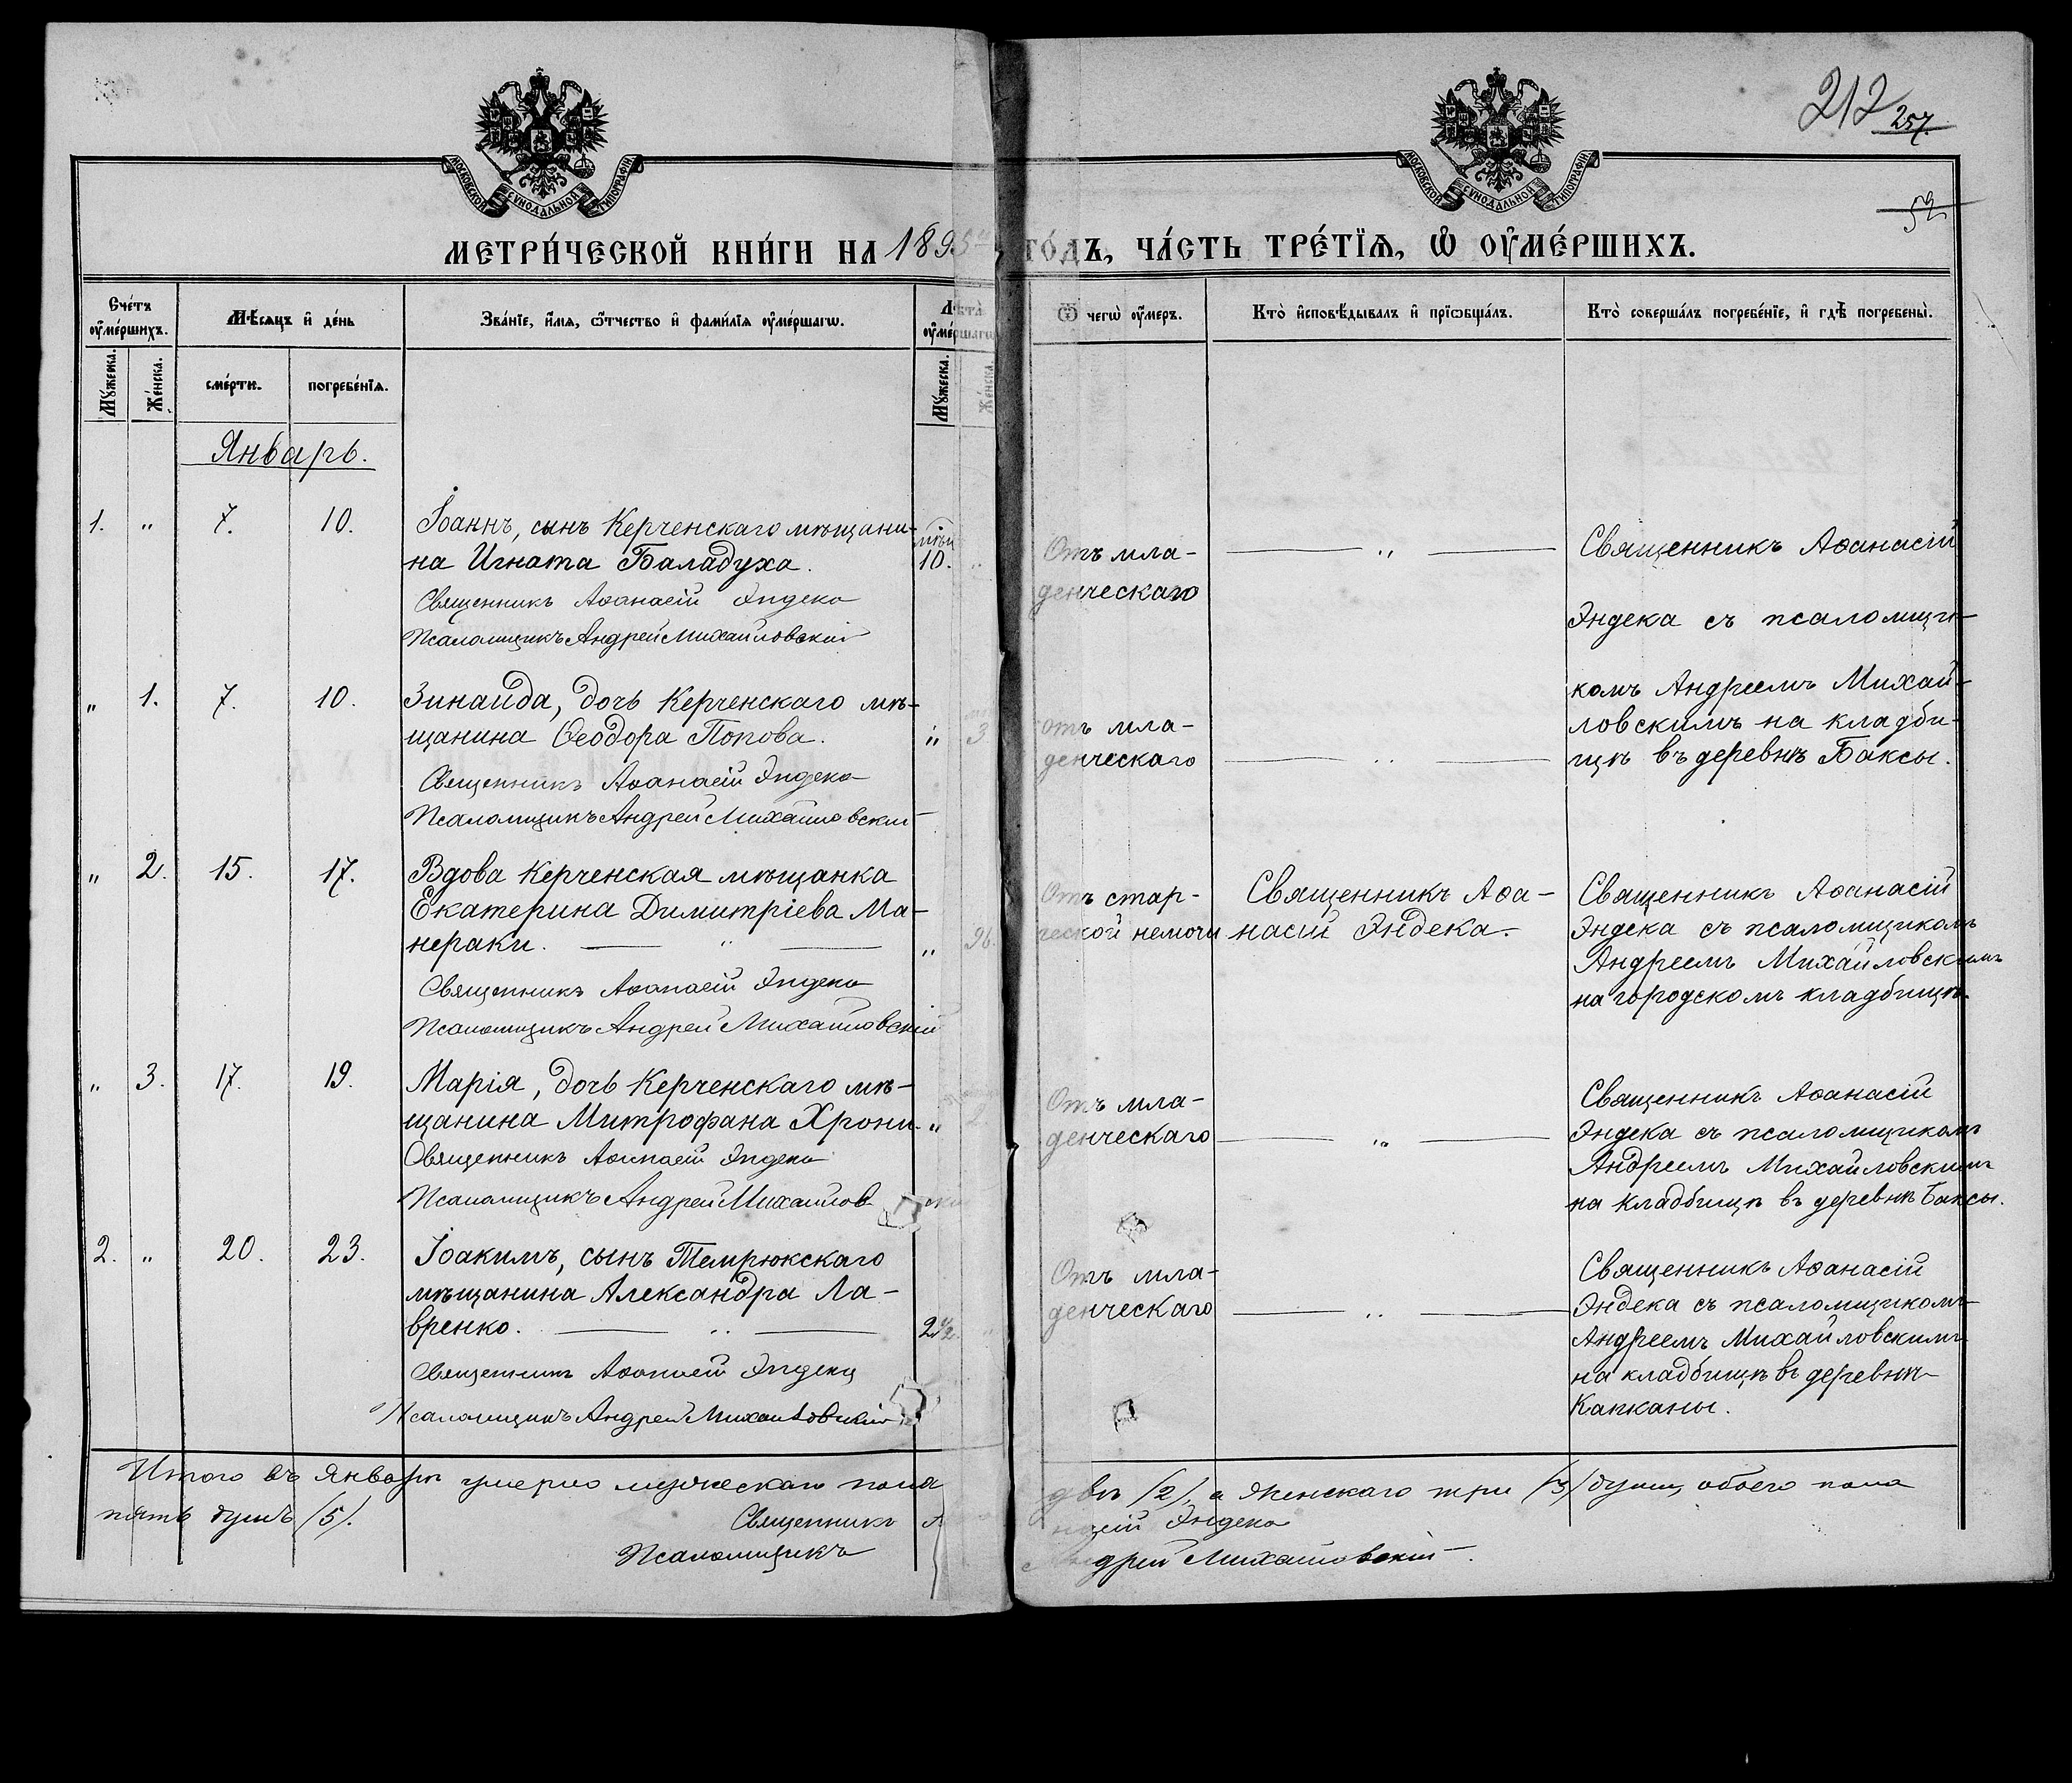 МОСКОВСКОЙ СѴНОДАЛЬНОЙ ТИПОГРАФІИ
МОСКОВСКОЙ СѴНОДАЛЬНОЙ ТИПОГРАФІИ
212 257
52
МЕТРИ́ЧЕСКОЙ КНИ́ГИ НА 1895й ГО́ДЪ, ЧА́СТЬ ТРЕ́ТЇѦ, Ѡ҆ ОУ҆МЕ́РШИХЪ.
Сче́тъ оу҆ме́ршихъ.
Мѣ́сяцъ и҆ де́нь
Зва́нїе, и҆́мѧ, ѻ҆́тчество и҆ фами́лїѧ оу҆ме́ршагѡ.
Лѣта̀ оу҆ме́ршагѡ
Ѿ чегѡ̀ оу҆́меръ.
Кто̀ и҆сповѣ́дывалъ и҆ прїѡбща́лъ.
Кто̀ соверша́лъ погребе́нїе, и҆ гдѣ̀ погребены̀.
Мꙋ́жеска.
Же́нска.
сме́рти.
погребе́нїѧ.
Мꙋ́жеска.
Же́нска.
Январь.
1. " 7. 10. Іоаннъ, сынъ Керченскаго мѣщани-
на Игната Баладуха. мѣц 10. "
Священникъ Аѳанасій Эндека
Псаломщикъ Андрей Михайловскій
Отъ мла-
денческаго
— " —
Священникъ Аѳанасій
Эндека съ псаломщи-
комъ Андреемъ Михай-
ловскимъ на кладби-
щѣ въ деревнѣ Баксы.
" 1. 7. 10. Зинаида, дочь Керченскаго мѣ-
щанина Ѳеодора Попова. " 3
Священникъ Аѳанасій Эндека
Псаломщикъ Андрей Михайловскій
отъ мла-
денческаго
— " —
" 2. 15. 17. Вдова Керченская мѣщанка
Екатерина Димитріева Ма-
нераки. — " — " 96.
Священникъ Аѳанасій Эндека
Псаломщикъ Андрей Михайловскій
Отъ стар-
ческой немочи
Священникъ Аѳа-
насій Эндека.
Священникъ Аѳанасій
Эндека съ псаломщикомъ
Андреемъ Михайловскимъ
на городскомъ кладбищѣ.
" 3. 17. 19. Марія, дочь Керченскаго мѣ-
щанина Митрофана Хрони. "
Священникъ Аѳанасій Эндека
Псаломщикъ Андрей Михайловскій
Отъ мла-
денческаго
— " —
Священникъ Аѳанасій
Эндека съ псаломщикомъ
Андреемъ Михайловскимъ
на кладбищѣ въ деревнѣ Баксы.
2. " 20. 23. Іоакимъ, сынъ Темрюкскаго
мѣщанина Александра Ла-
вренко. — " — 2½. "
Священникъ Аѳанасій Эндека
Псаломщикъ Андрей Михайловскій
Отъ мла-
денческаго
— " —
Священникъ Аѳанасій
Эндека съ псаломщикомъ
Андреемъ Михайловскимъ
на кладбищѣ въ деревнѣ
Капканы.
Итого въ Январѣ умерло мужескаго пола двѣ /2/, а женскаго три /3/ души, обоего пола
пять душъ /5/.
Священникъ Аѳанасій Эндека
Псаломщикъ Андрей Михайловскій.